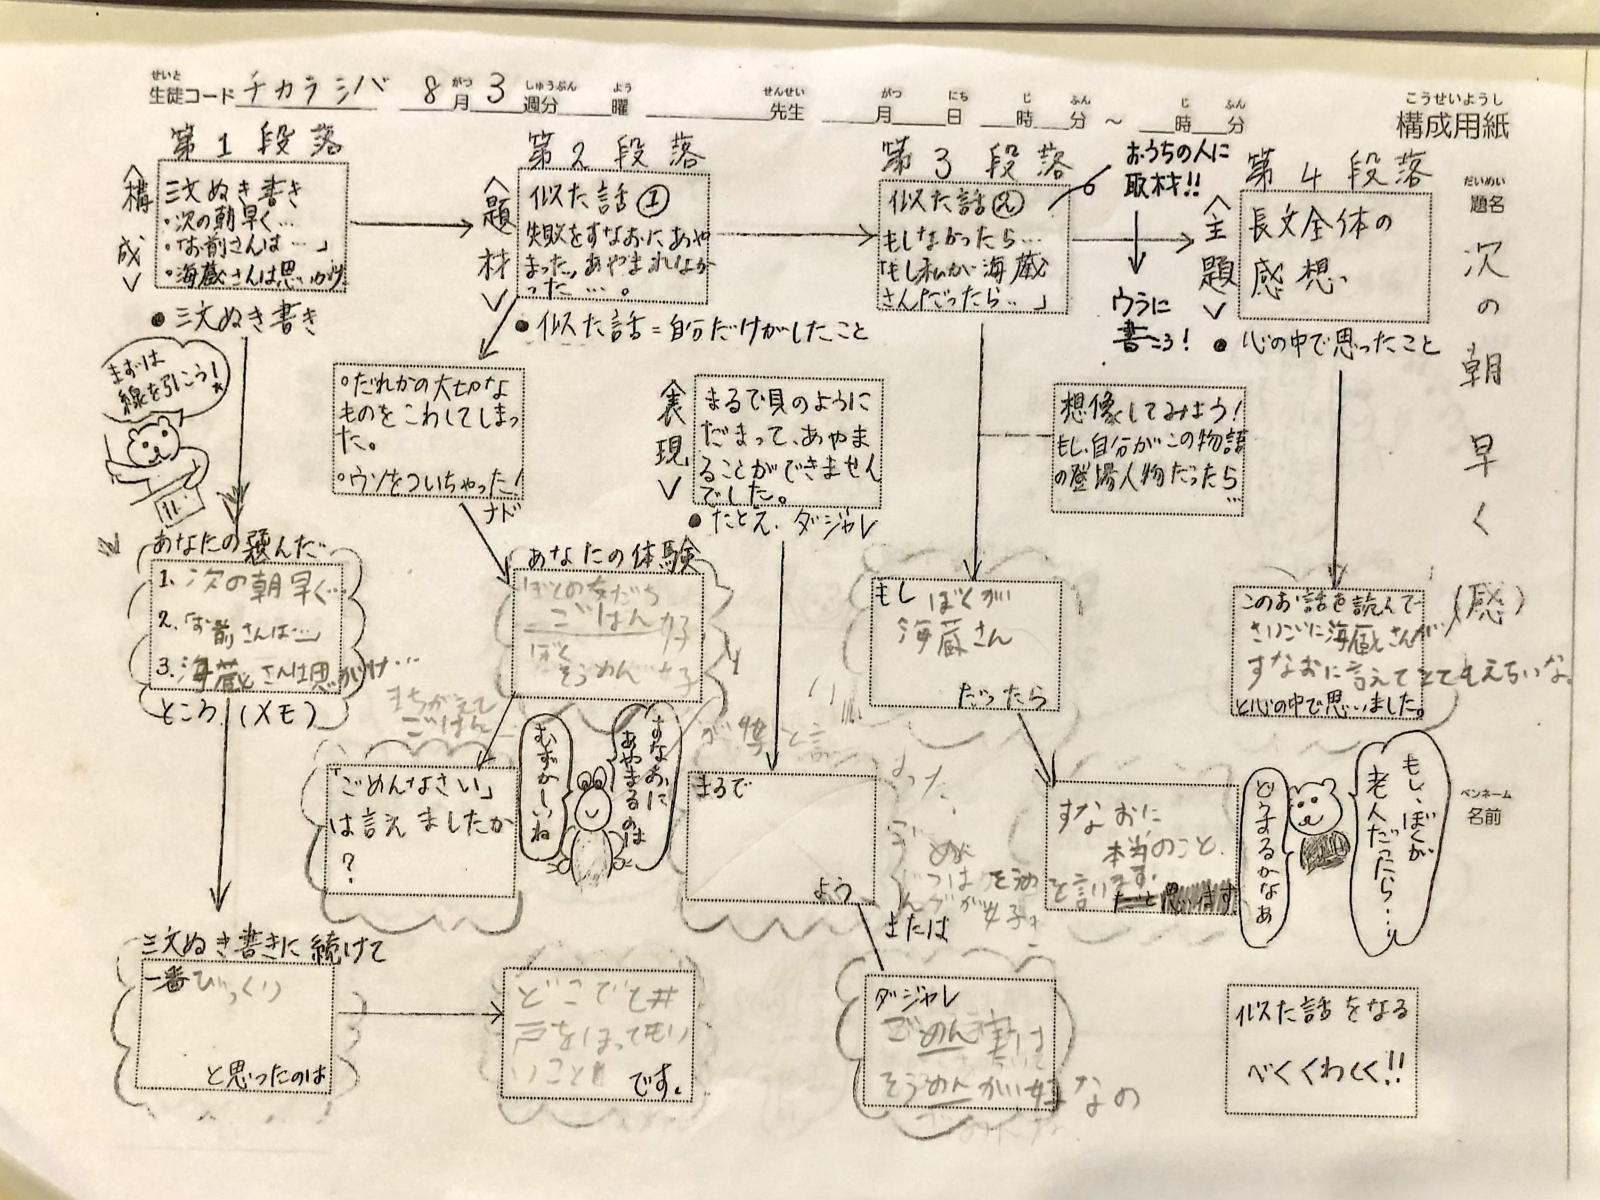 せいと
生徒コード チカラシバ 8月3週分 曜 先生 月 日 時 分 ～ 時 分
がつ しゅうぶん よう せんせい がつ にち じ ふん じ ふん
こうせいようし
構成用紙
だいめい
題名
次の朝早く
(感)
ペンネーム
名前
第1段落
〈構成〉
三文ぬき書き
・次の朝早く…
・「お前さんは…」
・海蔵さんは思いがけ
●三文ぬき書き
まずは
線を引こう!
あなたの選んだ
1. 次の朝早く…
2.「お前さんは…」
3. 海蔵さんは思いがけ…
ところ。(メモ)
三文ぬき書きに続けて
一番びっくり
と思ったのは
どこでも井
戸をほってもい
いこと
です。
第2段落
〈題材〉
似た話①
失敗をすなおにあや
まった。あやまれなか
った…。
●似た話=自分だけがしたこと
○だれかの大切な
ものをこわしてしまっ
た。
○ウソをついちゃった!
ナド
あなたの体験
ぼくの友だち
ごはん好
ぼく
そうめん好
まちがえて
ごはん
「ごめんなさい」
は言えましたか
?
すなおに
あやまるのは
むずかしいね
〈表現〉
まるで貝のように
だまって、あやま
ることができません
でした。
●たとえ、ダジャレ
まるで
よう
または
ダジャレ
ごめん実は
そうめんが好なの
第3段落
似た話②
もしなかったら…
「もし私が海蔵
さんだったら…」
おうちの人に
取材!!
ウラに
書こう!
想像してみよう!
もし、自分がこの物語
の登場人物だったら
…
もし ぼくが
海蔵さん
だったら
すなおに
本当のこと
を言います。
だと思います
第4段落
〈主題〉
長文全体の
感想
●心の中で思ったこと
このお話を読んで
さいごに海蔵さんが
すなおに言えてとてもえらいな。
と心の中で思いました。
もし、ぼくが
老人だったら…
どうするかなぁ
似た話をなる
べくくわしく!!